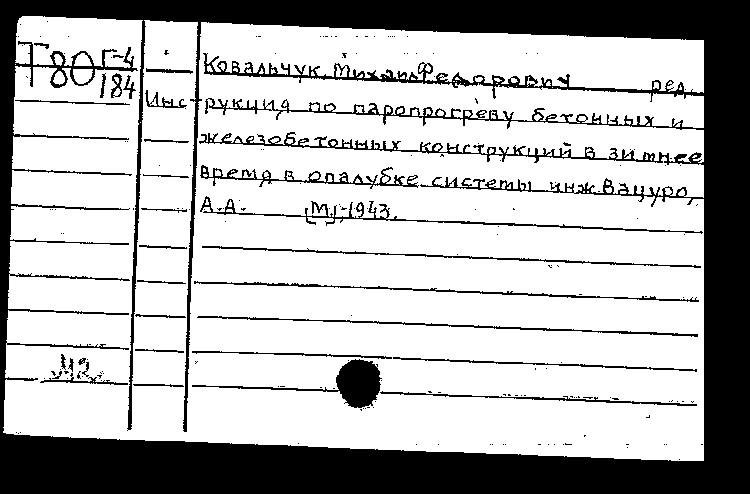 Т80 Г-4
184
Ковальчук, Михаил Федорович ред.
Инструкция по паропрогреву бетонных и
железобетонных конструкций в зимнее
время в опалубке системы инж. Вацуро,
А.А. [М], 1943.